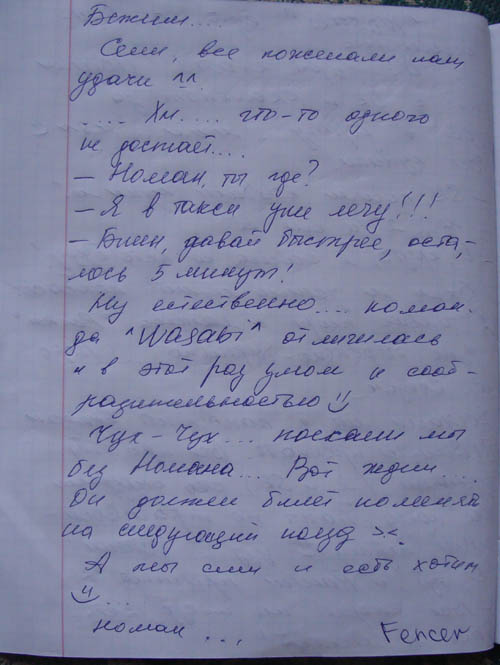 Бежим....
Сели, все пожелали нам
удачи ^^.
.... Хм.... что-то одного
не достаёт....
– Номан, ты где?
– Я в такси уже лечу!!!
– Блин, давай быстрее, оста-
лось 5 минут!
Ну естественно.... коман-
да ^Wasabi^ отличилась
и в этот раз умом и сооб-
разительностью
Чух-Чух... поехали мы
без Номана... Вот ждём....
Он должен билет поменять
на следующий поезд ><.
А мы сели и есть хотим
...
номан ...
Fencer